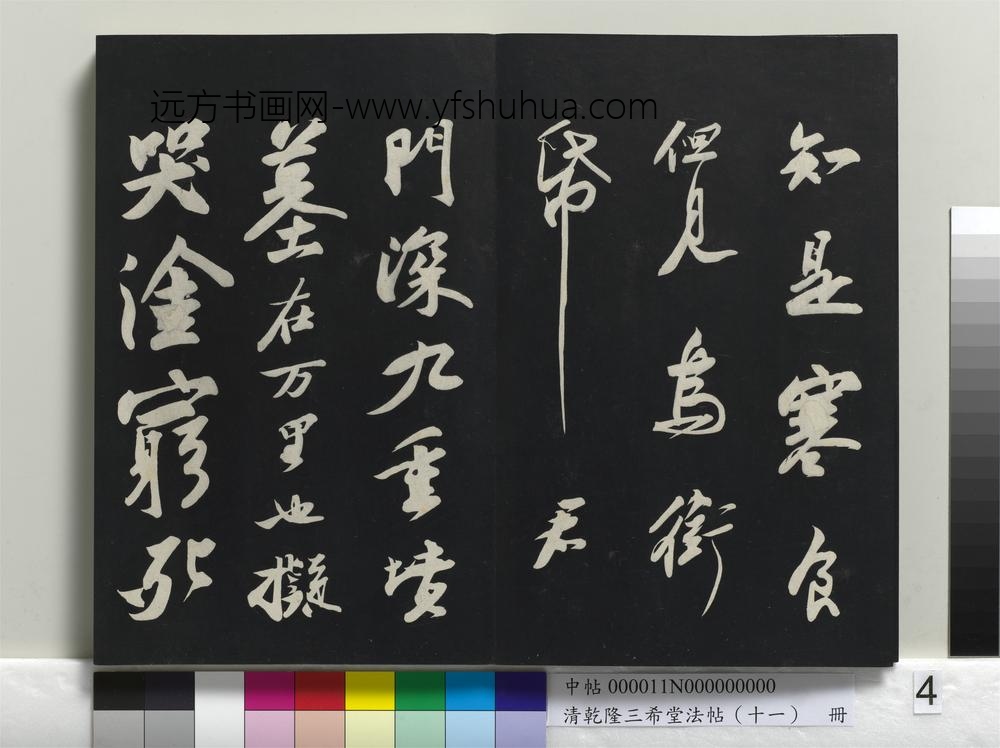 远方书画网-www.yfshuhua.com
知是寒食
但見烏銜
帋君
門深九重墳
墓在万里也擬
哭塗窮死
中帖 000011N000000000
清乾隆三希堂法帖（十一） 冊
4